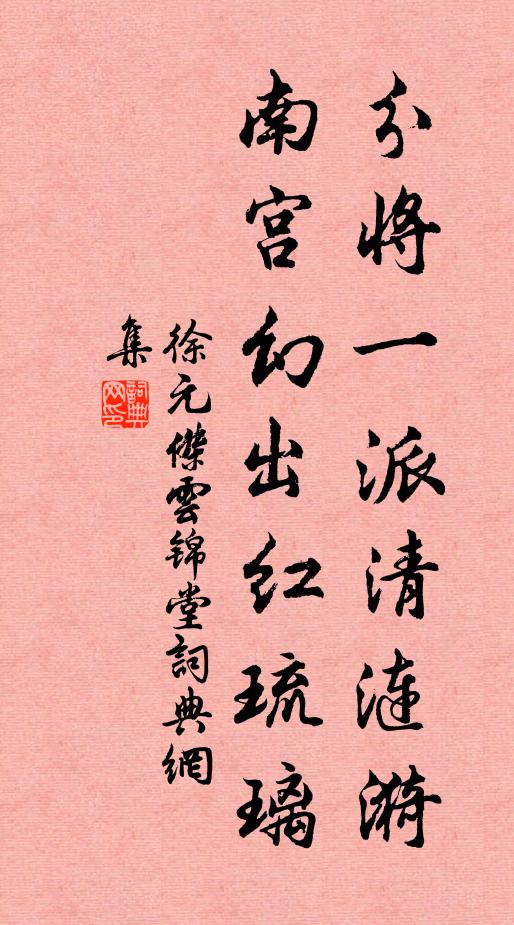 分將一派清漣漪
南宫幻出红琉璃
徐元傑雲锦堂詞典網
集
詞典网印